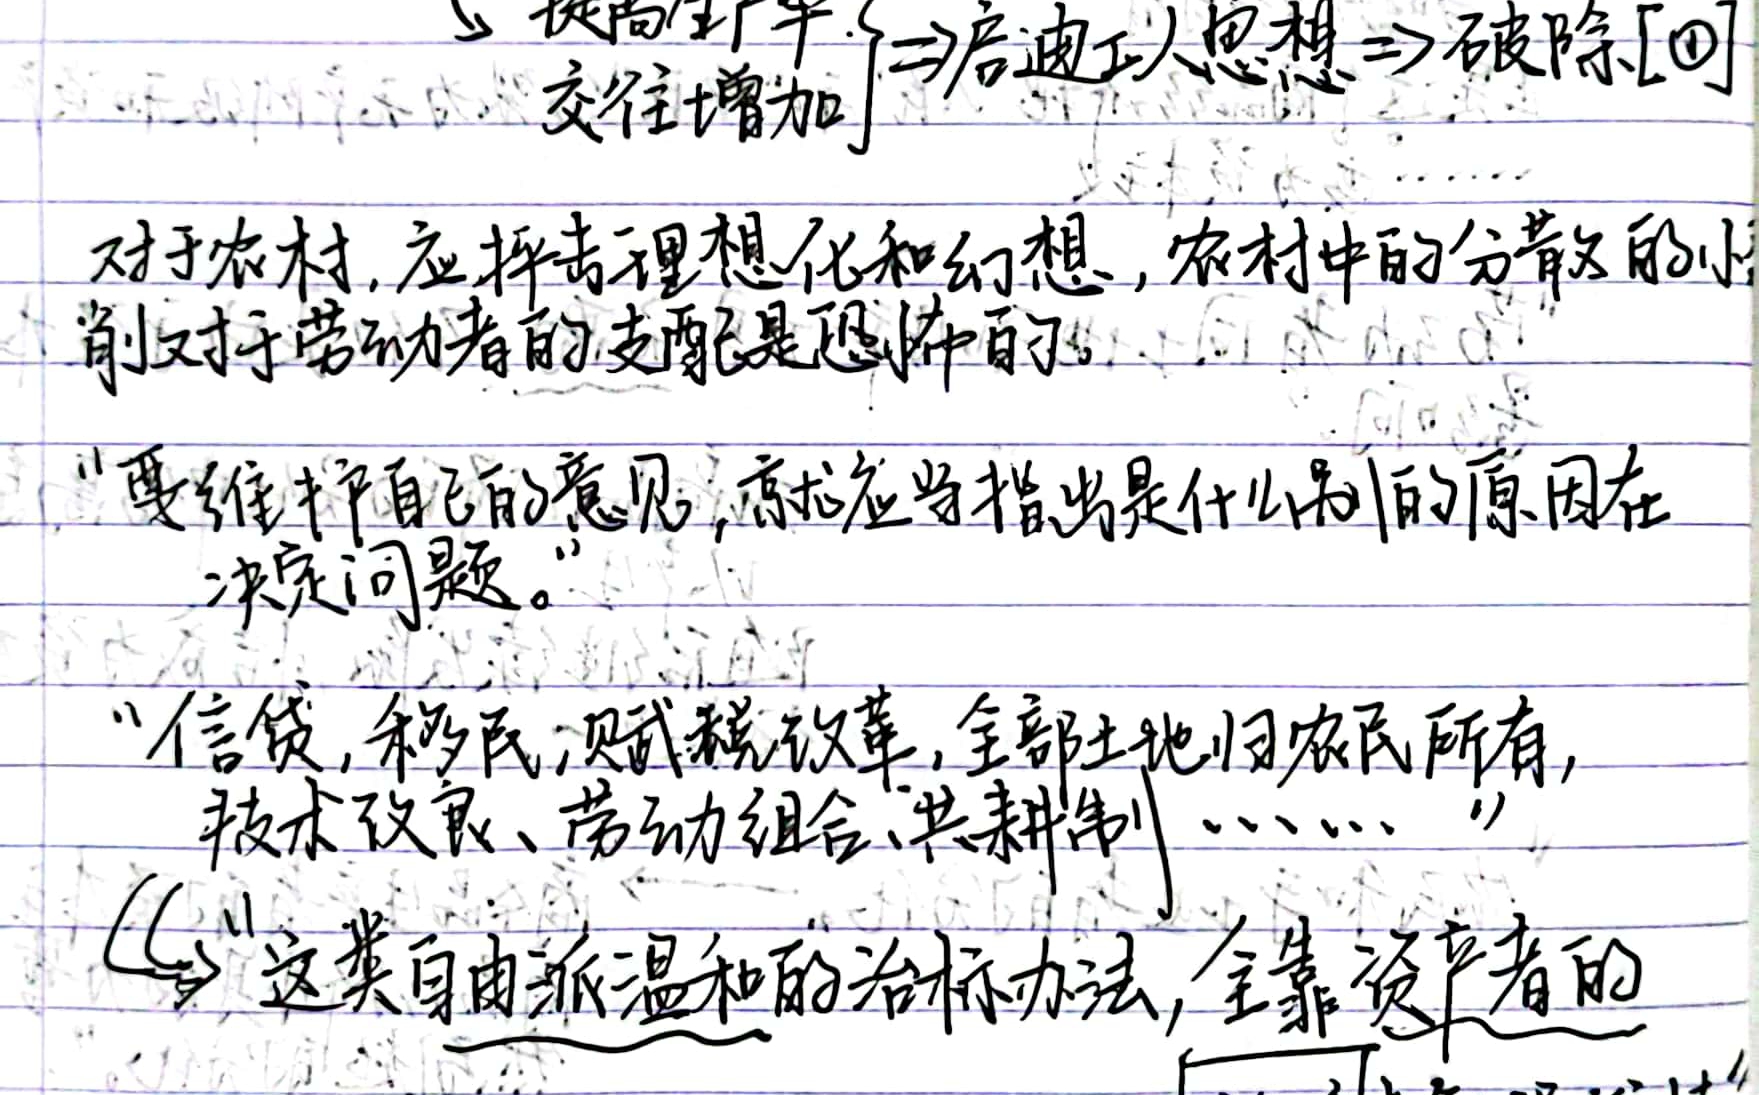 ↘ 提高生产率
交往增加 } ⇒ 启迪工人思想 ⇒ 破除[①]
对于农村,应抨击理想化和幻想,农村中的分散的小
削对于劳动者的支配是恐怖的。
“要维护自己的意见,就应当指出是什么别的原因在
决定问题。”
“信贷,移民,赋税改革,全部土地归农民所有,
技术改良、劳动组合、共耕制……”
↳“这类自由派温和的治标办法,全靠资产者的